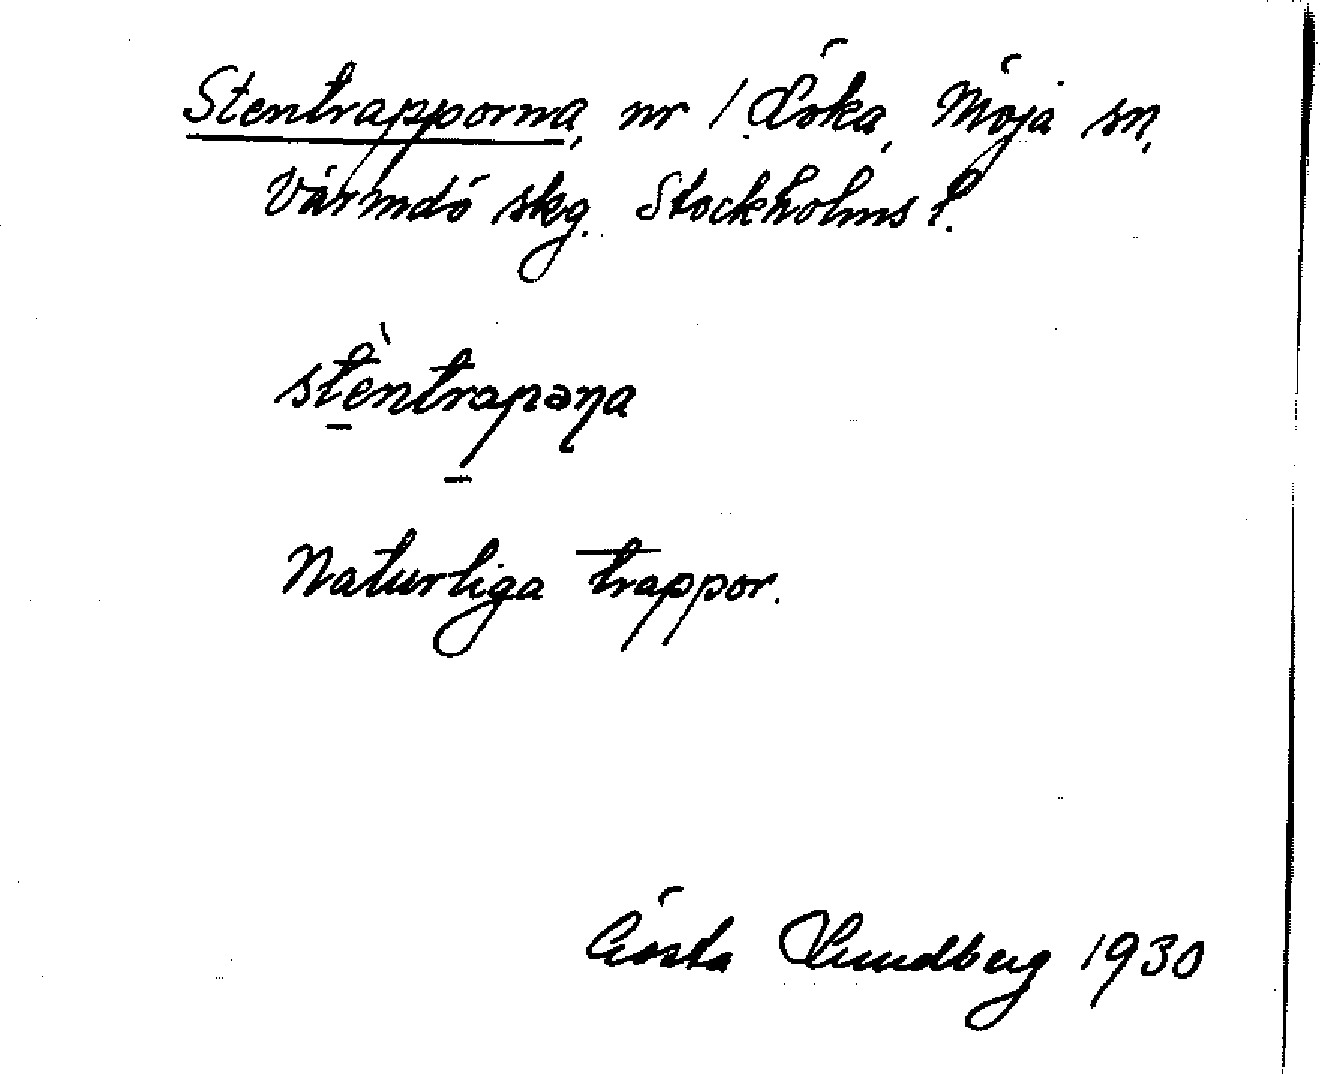 Stentrapporna, nr 1 Löka, Möja sn,
Värmdö skg. Stockholms l.
stèntrapəṇa
Naturliga trappor.
Gösta Lundberg 1930